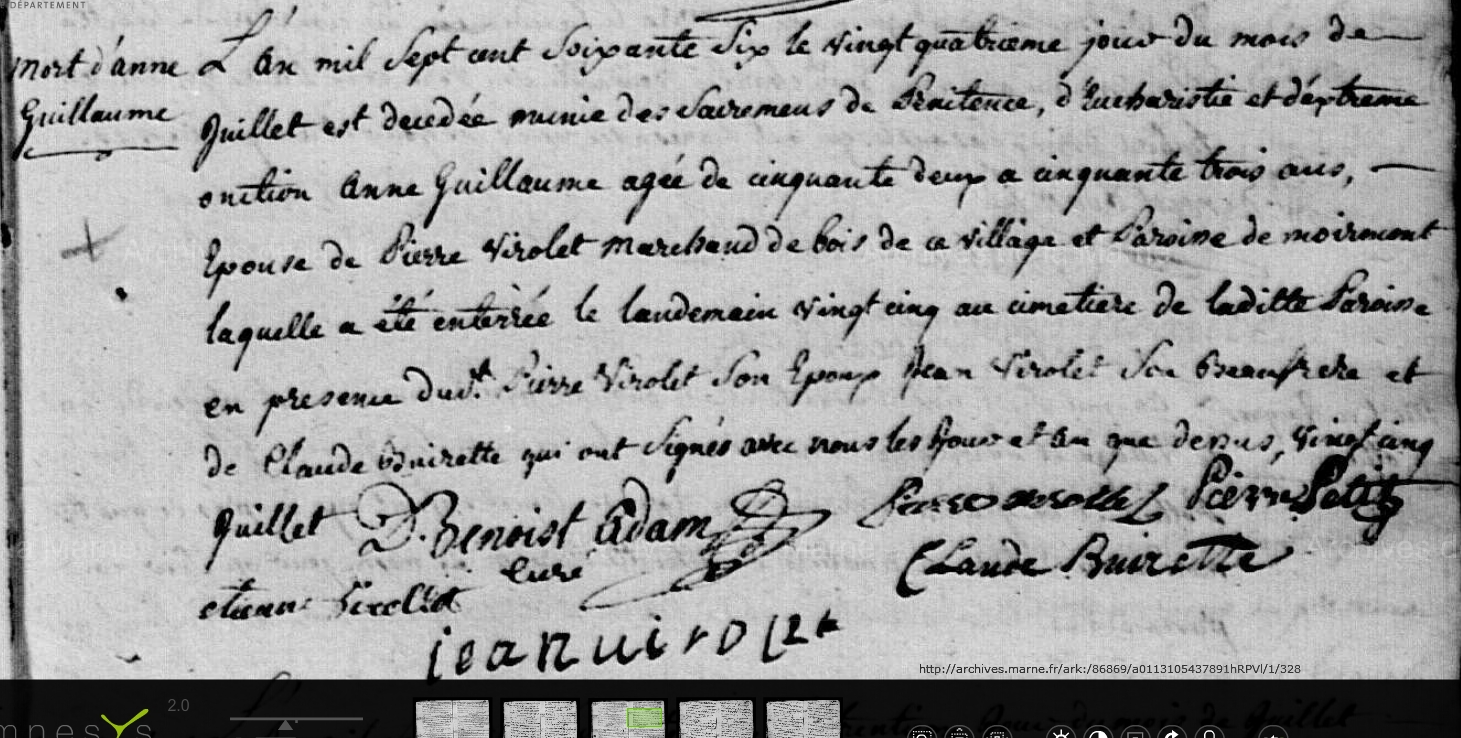 DÉPARTEMENT
mort d'anne
Guillaume
L'An mil Sept cent Soixante Six le vingt quatrieme jour du mois de
Juillet est decedée munie des Sacremens de Penitence, d'Eucharistie et d'éxtreme
onction Anne Guillaume agée de cinquante deux a cinquante trois ans,
Epouse de Pierre Virolet marchand de bois de ce village et Paroisse de moirmont
laquelle a été enterrée le landemain vingt cinq au cimetiere de laditte Paroisse
en presence dud.t Pierre Virolet son Epoux Jean Virolet son Beaufrere et
de Claude Buirette qui ont signés avec nous les Jour et an que dessus, vingt cinq
Juillet D. Benoist Adam Pierre Petit
curé Claude Buirette
etienne Virollet
jean virolet
http://archives.marne.fr/ark:/86869/a0113105437891hRPVl/1/328
2.0
mnesys
du mois de Juillet